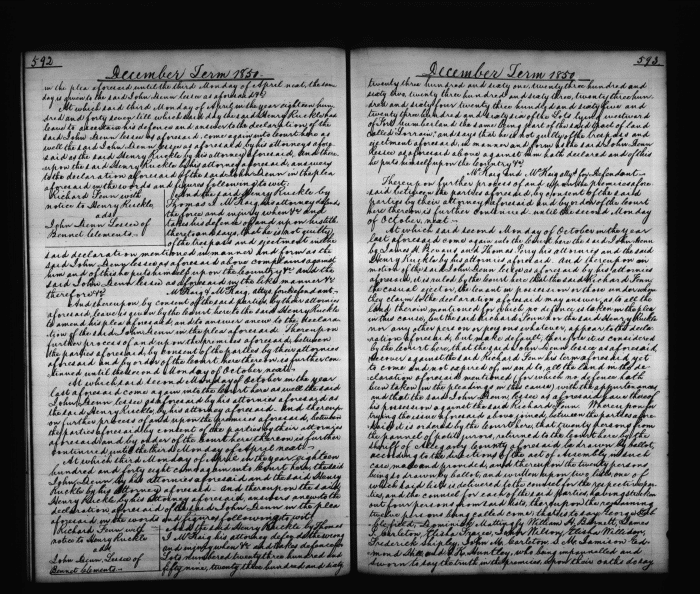 592
December Term 1850
in the plea aforesaid until the third Monday of April next, the same
day is given to the said John Denn lessee as aforesaid &c
At which said third Monday of April in the year eighteen hun
dred and forty seven till which said day the said Henry Ruckle has
leave to the said John Denn
said John Denn lessee as aforesaid come again into Court here as
well the said John Denn lessee as aforesaid by his attornies afore
said as the said Henry Ruckle by his attorney aforesaid. And there
upon the said Henry Ruckle by his attorney aforesaid, answers
to the declaration aforesaid of the said John Denn in the plea
aforesaid in the words and figures following to wit;
Richard Fenn with
notice to Henry Ruckle
ads
John Denn Lessee of
Bennet Clements.
And the said Henry Ruckle by
Thomas I McKaig his attorney defends
the force and injury when &c and
takes his defence and upon his title
therein and says, that he is not guilty
of the trespass and ejectment in the
said declaration mentioned in manner and form as the
said John Denn lessee as aforesaid above complains against
him and of this he puts himself upon the Country &c and the
said John Denn lessee as aforesaid in the like manner &c
therefore &c McKaig & McKaig attys for Defendant.
And thereupon by consent of the said parties by their attornies
aforesaid leave is given by the Court here to the said Henry Ruckle
to amend his plea aforesaid, and to answer anew to the declara
tion of the said John Denn in the plea aforesaid. Thereupon
further process of and upon the premises aforesaid, between
the parties aforesaid by consent of the parties by their attornies
aforesaid and by order of the Court here thereon is further con
tinued until the second Monday of October next.
At which said second Monday of October in the year
last aforesaid come again into the Court here as well the said
John Denn lessee as aforesaid by his attornies aforesaid as
the said Henry Ruckle by his attorney aforesaid. And thereup
on further process of and upon the premises aforesaid, between
the parties aforesaid by consent of the parties by their attornies
aforesaid and by order of the Court here thereon is further
continued until the third Monday of April next.
At which said third Monday of April in the year eighteen
hundred and forty eight come again into Court here the said
John Denn by his attornies aforesaid and the said Henry
Ruckle by his attorney aforesaid. And thereupon the said
Henry Ruckle by his attorney aforesaid, answers anew to the
declaration aforesaid of the said John Denn in the plea
aforesaid in the words and figures following to wit
Richard Fenn with
notice to Henry Ruckle
ads
John Denn, Lessee of
Bennet Clements.
And the said Henry Ruckle by Thomas
I McKaig his attorney defends the wrong
and injury when &c and takes defence for
Lots numbered twenty three hundred and
fifty nine, twenty three hundred and sixty
593
December Term 1850
twenty three hundred and sixty one, twenty three hundred and
sixty two, twenty three hundred and sixty three, twenty three hund
red and sixty four twenty three hundred and sixty five and
twenty three hundred and sixty six of the Lots lying westward
of Fort Cumberland the same being part of the said tract of Land
called "Lorrain," and says that he is not guilty of the trespass and
ejectment aforesaid, in manner and form as the said John Denn
lessee as aforesaid above against him hath declared and of this
he puts himself upon the Country &c
McKaig and McKaig attys for Defendant.
Thereupon further process of and upon the premises afore
said between the parties aforesaid by consent of the said
parties by their attornies aforesaid and by order of the Court
here thereon is further continued until the second Monday
of October next.
At which said second Monday of October in the year
last aforesaid come again into the Court here the said John Denn
by James M and Thomas Perry his attornies and the said
Henry Ruckle by his attornies aforesaid. And thereupon on
motion of the said John Denn lessee as aforesaid by his attornies
aforesaid, it is ruled by the Court here that the said Richard Fenn,
the casual ejector, the tenant in possession or those under whom
they claim to the declaration aforesaid may answer, as to all the
Land therein mentioned for which no defence is taken in the plea
in this cause, but the said Richard Fenn nor the said Henry Ruckle
nor any other person or persons whatever, appear to the decla
ration aforesaid, but make default, therefore it is considered
by the Court here, that the said John Denn lessee as aforesaid
recover against the said Richard Fenn his term aforesaid yet
to come and not expired of and to, all the Land in the de
claration aforesaid mentioned (for which no defence hath
been taken in the pleadings in this cause) with the appurtenances,
and that the said John Denn lessee as aforesaid have thereof
his possession against the said Richard Fenn. Whereupon for
trying the issue aforesaid above joined between the parties afore
said it is ordered by the Court here, that twenty persons from
the pannel of petit jurors, returned to the Court here by the
sheriff of Allegany County aforesaid be drawn by ballot,
according to the directions of the act of Assembly, in such
case, made and provided, and thereupon the twenty persons
being so drawn by ballot and written upon two lists, one of
which said lists is delivered to the counsel for the respective par
ties, and the counsel for each of the said parties, having stricken
out four persons from said lists, the residue remaining
twelve persons being called come that is to say George
, Dominick Mattingly, William H. Barnett, James
I. Carleton, Elisha Frazee, John Wilson, Elisha Willison,
Frederick Shipley, John M. Carleton, S. M. Jamison Ed
mond and H. Huntley, who being impannelled and
sworn to say the truth in the premises, upon their oaths do say